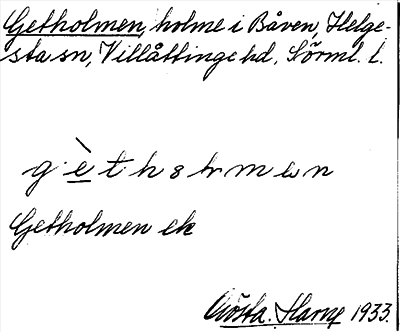 Getholmen, holme i Båven, Helge-
sta sn, Villåttinge hd, Sörml. l.
Getholmen ek
Gösta. 1933.